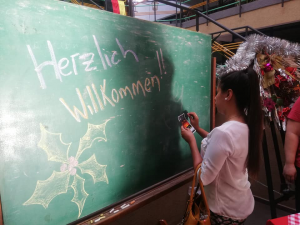 Herzlich
Willkommen!!